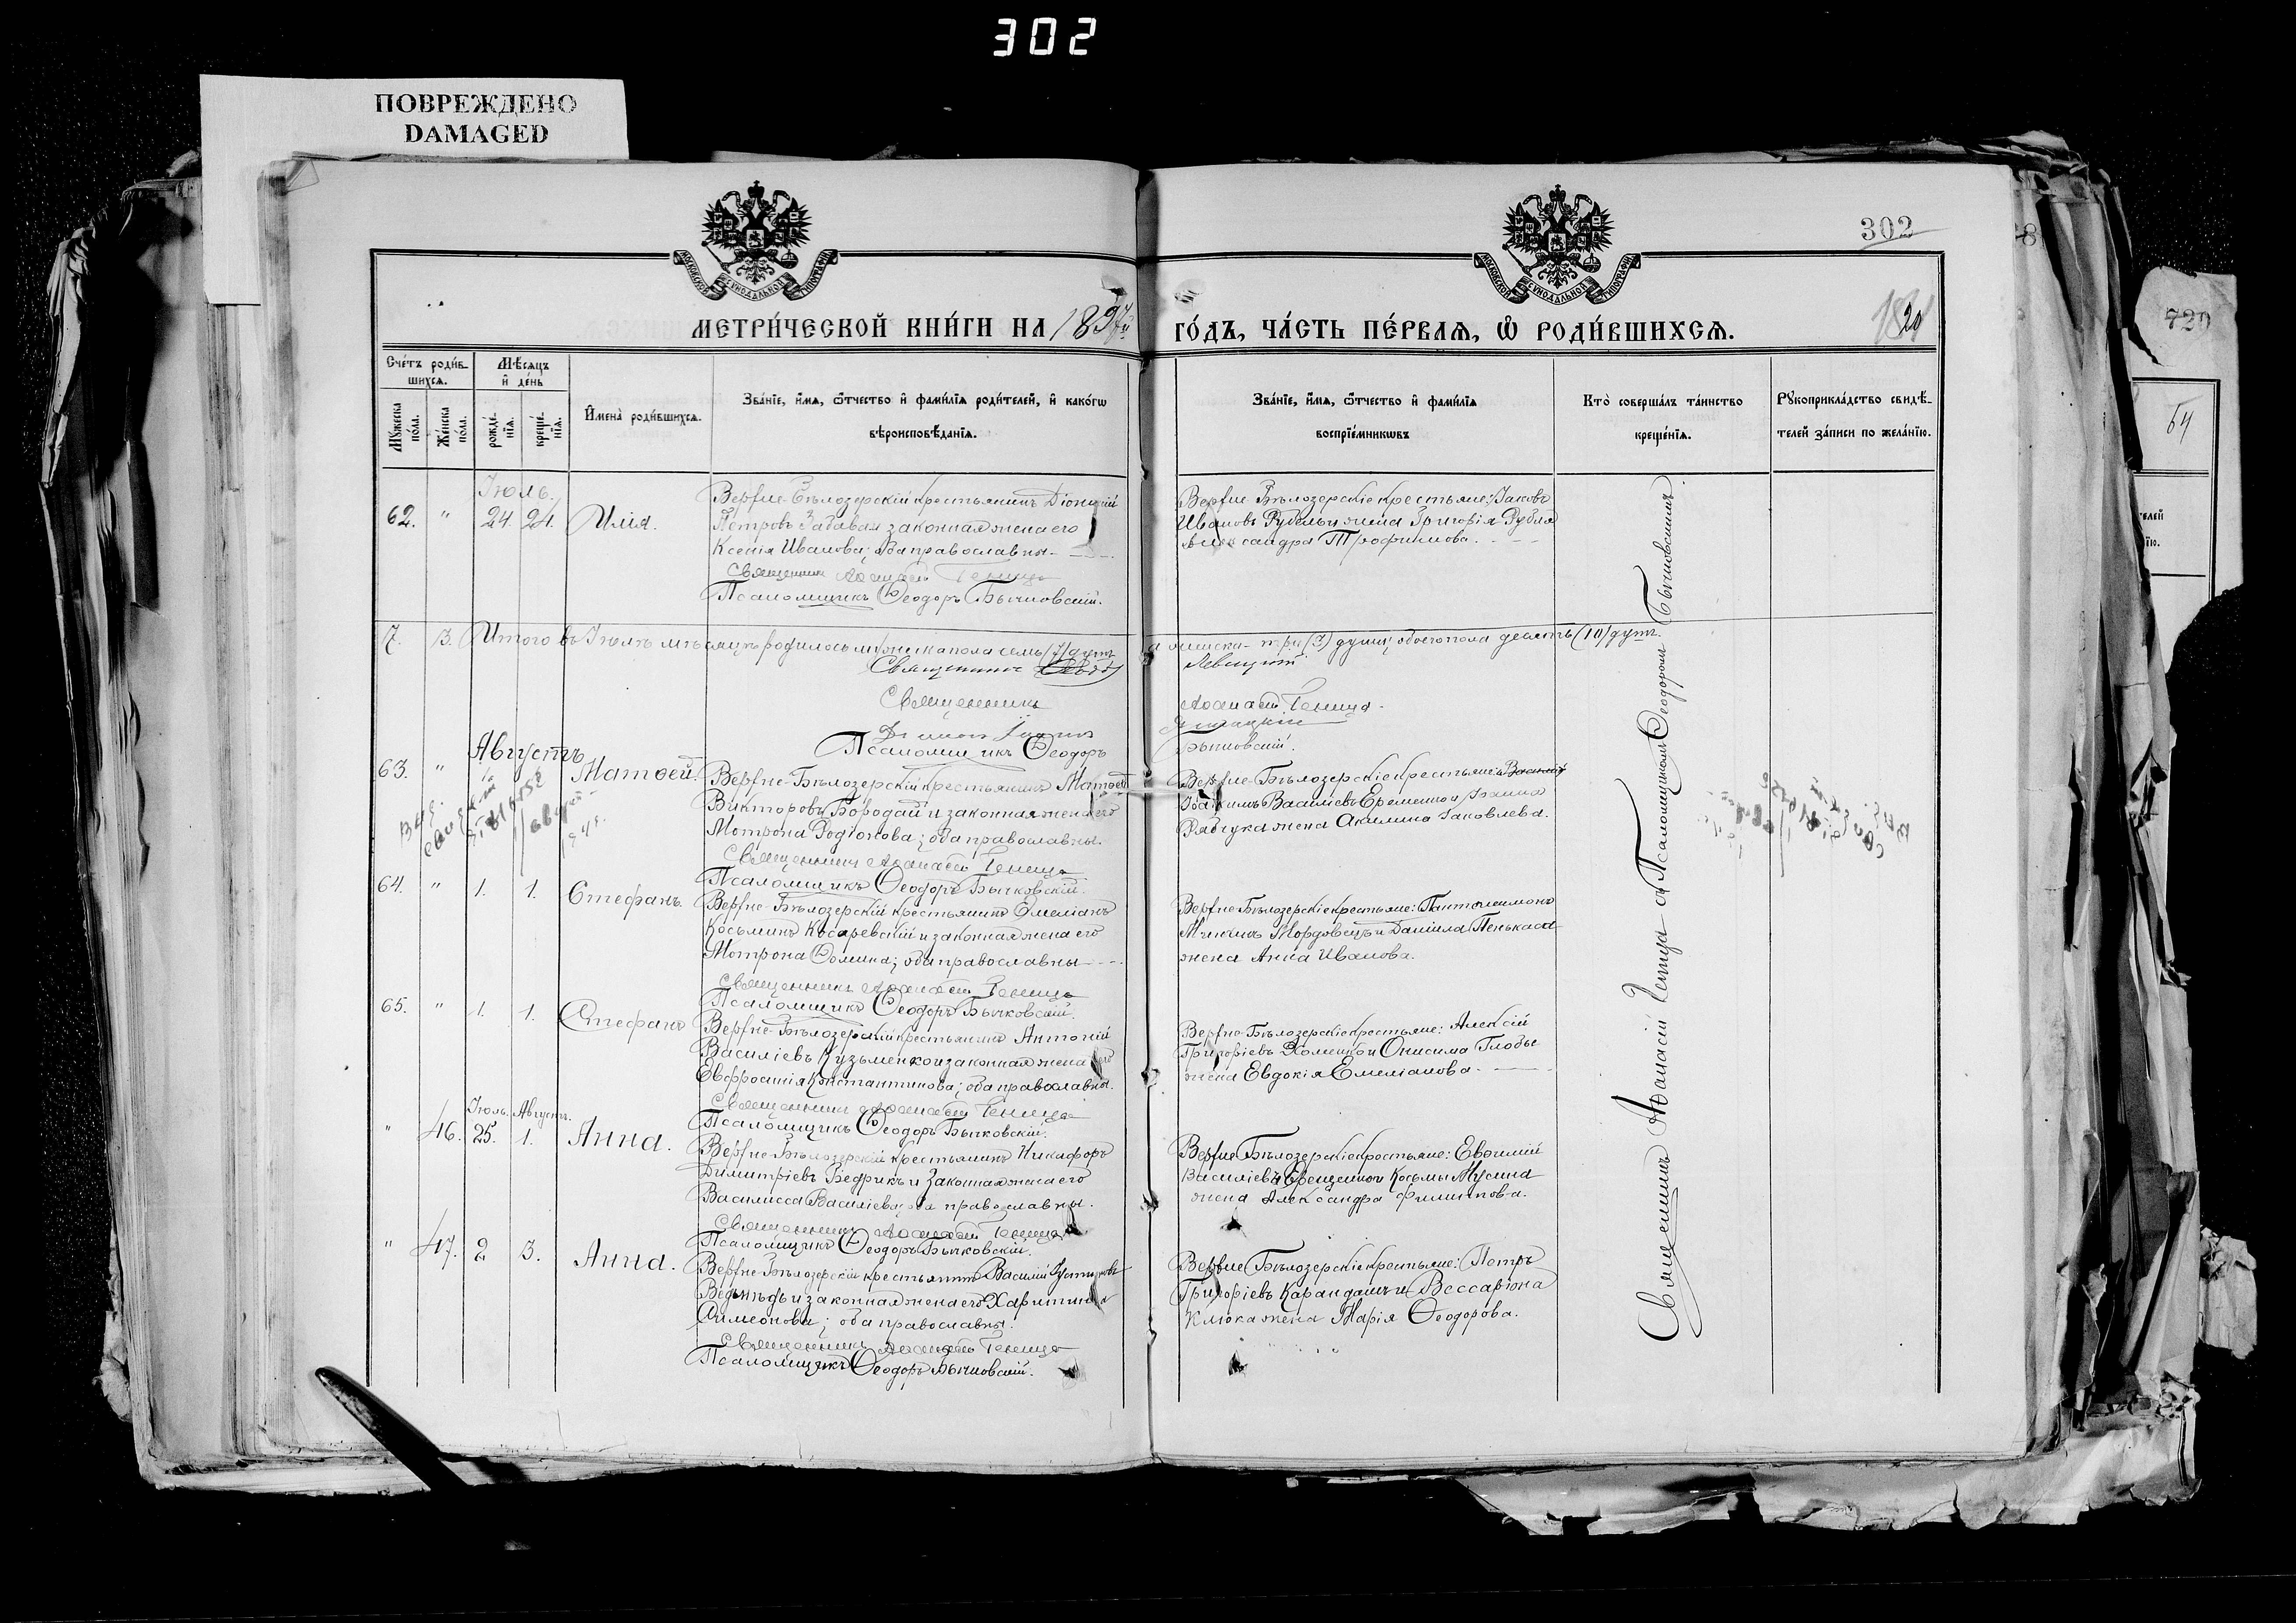 302
ПОВРЕЖДЕНО
DAMAGED
302
МОСКОВСКОЙ СѴНОДАЛЬНОЙ ТИПОГРАФІИ
МОСКОВСКОЙ СѴНОДАЛЬНОЙ ТИПОГРАФІИ
МЕТРИ́ЧЕСКОЙ КНИ́ГИ НА 1897й ГО́ДЪ, ЧА́СТЬ ПЕ́РВАЯ, Ѡ РОДИ́ВШИХСЯ.
20
Сче́тъ роди́в-
шихся.
Мѣсяцъ
и де́нь
Му́жеска по́ла.
Же́нска по́ла.
рожде́-нїя.
креще́-нїя.
Имена̀ роди́вшихся.
Зва́нїе, и́мя, ѻ́тчество и фами́лїя роди́телей, и како́гѡ
вѣроисповѣ́данїя.
Зва́нїе, и́мя, ѻ́тчество и фами́лїя
воспрїе́мникѡвъ
Кто̀ соверша́лъ та́инство
креще́нїя.
Рꙋкоприкла́дство свидѣ́-
телей за́писи по жела́нїю.
Іюль.
62. " 24. 24. Илія.
Верхне-Бѣлозерскій крестьянинъ Діонисій
Петровъ Забавая законная жена его
Ксенія Иванова; оба православны.
Священникъ Аѳанасій Геница
Псаломщикъ Ѳеодоръ Бычковскій.
Верхне Бѣлозерскіе крестьяне: Іаковъ
Ивановъ Рубель и жена Григорія Рубля
Александра Трофимова.
7. 3. Итого въ Іюлѣ мѣсяцѣ родилось мужеска пола семь (7) душъ а женска - три (3) души; обоего пола десять (10) душъ.
Священникъ Левицкій
Священникъ Аѳанасій Геница
Псаломщикъ Ѳеодоръ Бычковскій.
Августъ
63. " Матѳей.
Верхне-Бѣлозерскій крестьянинъ Матѳей
Викторовъ Бородай и законная жена его
Мотрона Родіонова; оба православны.
Священникъ Аѳанасій Геница
Псаломщикъ Ѳеодоръ Бычковскій.
Верхне-Бѣлозерскіе крестьяне:
Іоакимъ Василіевъ Еременко и Іоанна
Рабчука жена Акилина Іаковлева.
64. " 1. 1. Стефанъ.
Верхне-Бѣлозерскій крестьянинъ Емеліанъ
Косьминъ Косаревскій и законная жена его
Мотрона Ѳомина; оба православны
Священникъ Аѳанасій Геница
Псаломщикъ Ѳеодоръ Бычковскій.
Верхне Бѣлозерскіе крестьяне: Пантолимонъ
Мининъ Мордовецъ и Даніила Пенькаса
жена Анна Иванова.
65. " 1. 1. Стефанъ
Верхне-Бѣлозерскій крестьянинъ Антоній
Василіевъ Кузьменко и законная жена его
Евфросинія Константинова; оба православны.
Священникъ Аѳанасій Геница
Псаломщикъ Ѳеодоръ Бычковскій.
Верхне-Бѣлозерскіе крестьяне: Алексій
Григоріевъ Хоменко и Онисима Глобы
жена Евдокія Емеліанова.
Іюль. Августъ.
" 46. 25. 1. Анна.
Верхне-Бѣлозерскій крестьянинъ Никифоръ
Димитріевъ Бедрикъ и законная жена его
Василисса Василіева; оба православны.
Священникъ Аѳанасій Геница
Псаломщикъ Ѳеодоръ Бычковскій.
Верхне Бѣлозерскіе крестьяне: Евѳимій
Василіевъ Ерещенко и Косьмы Мусина
жена Александра Филиппова.
" 47. 2 3. Анна.
Верхне-Бѣлозерскій крестьянинъ Василій Іустиновъ
Ведмѣдь и законная жена его Харитина
Симеонова; оба православны.
Священникъ Аѳанасій Геница
Псаломщикъ Ѳеодоръ Бычковскій.
Верхне Бѣлозерскіе крестьяне: Петръ
Григоріевъ Карандашъ и Вессаріона
Клюка жена Марія Ѳеодорова.
Священникъ Аѳанасій Геница съ Псаломщикомъ Ѳеодоромъ Бычковскимъ.